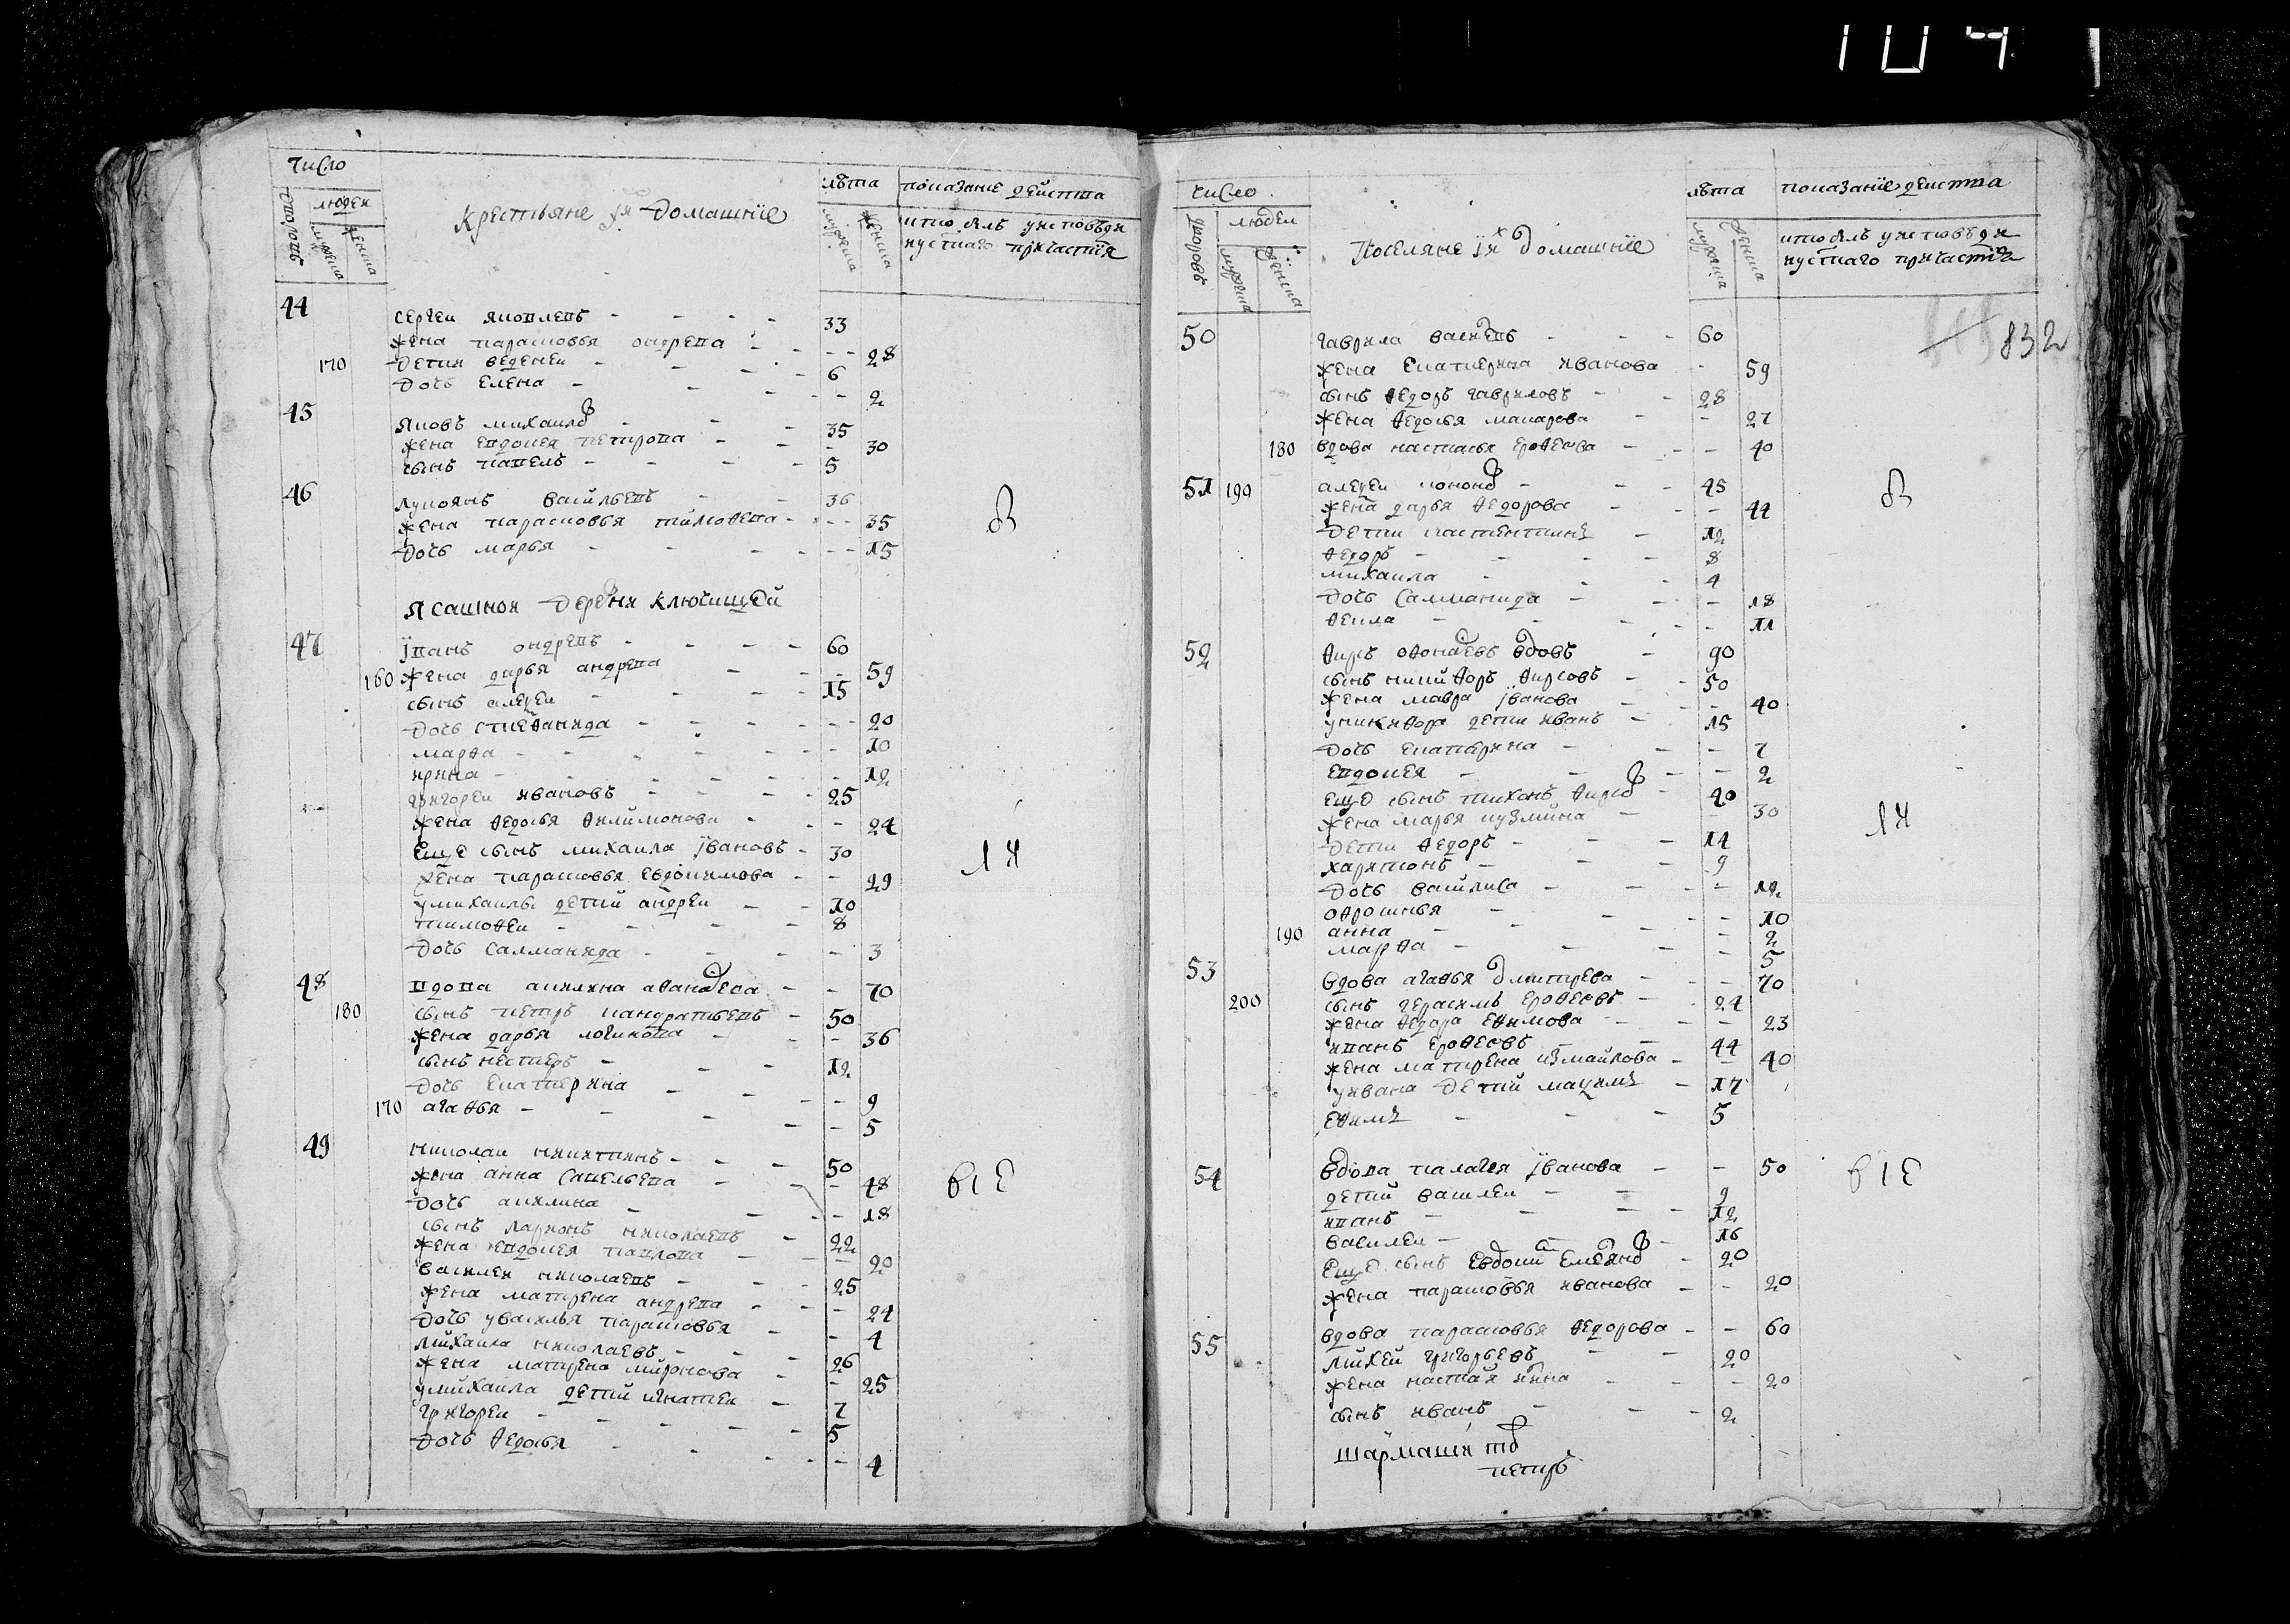 104
число
лѣта показание деиства
дворовъ людеи
мужеска женска
крестьяне их домашние
мужеска женска
кто былъ у исповѣди
и святаго причастия
44
сергеи яковлевъ - - - - 33
жена парасковья ондрева - - - 28
170 дети веденеи - - - 6
дочь елена - - - 2
45
яковъ михаило - - - 35
жена евдокея петрова - - - 30
сынъ павелъ - - - - 5
46
лукоянъ васильевъ - - 36
жена парасковья тимофева - - - 35
дочь марья - - - - 15
я сашной деревня ключищей
47 иванъ ондревъ - - - - 60
160 жена дарья андрева - - - 59
сынъ алеѯеи - - - - 15
дочь стефанида - - - - 20
марфа - - - - - 10
ирина - - - - - 12
григореи ивановъ - - - - 25
жена федосья филимонова - - - 24
еще сынъ михаила ивановъ - 30
жена парасковья евдокимова - - 29
у михаилы детии андреи - - 10
тимофеи - - - - 8
дочь саломанида - - - - 3
48 вдова акилина афанасева - - 70
180 сынъ петръ кандратьевъ - 50
жена дарья логинова - - - 36
сынъ нестеръ - - - 12
дочь екатерина - - - 9
170 агафья - - - - 5
49
николаи никитинъ - - - 50
жена анна савельева - - - 48
дочь акилина - - - 18
сынъ ларионъ николаевъ - 22
жена евдокея павлова - - - 20
василеи николаевъ - - - 25
жена матрена андрева - - - 24
дочь у василья парасковья - - 4
михаила николаевъ - - - 26
жена матрена миронова - - 25
у михаила детии игнатеи - 7
григореи - - - - - 5
дочь федосья - - - - 4
число
лѣта показание деиства
дворовъ людеи
мужеска женска
Поселяне их домашние
мужеска женска
кто былъ у исповѣди
и святаго причастия
832
50 гаврила васильевъ - - - 60
жена екатерина иванова - 59
сынъ федоръ гавриловъ - - 28
жена федосья макарова - - 27
180 вдова настасья ерофеева - - - 40
51 190 алеѯеи кононо - - - 45
жена дарья федорова - - - 44
дети костентинъ - 12
федоръ - - - - 8
михаила - - - 4
дочь саломанида - - - 18
фекла - - - - 11
52 фирсъ афонасевъ вдовъ - 90
сынъ никифоръ фирсовъ - - 50
жена мавра иванова - - - 40
у никифора дети иванъ - 15
дочь екатерина - - - 7
евдокея - - - - 2
еще сынъ тихонъ фирсо - 40
жена марья кузмина - - 30
дети федоръ - - - 14
харитонъ - - - 9
дочь василиса - - - 12
офросинья - - - - 10
190 анна - - - 2
марфа - - - - 5
53
вдова агафья дмитрева - - 70
200 сынъ герасимъ ерофеевъ - 24
жена федора ефимова - - - 23
иванъ ерофеевъ - - 44
жена матрена измайлова - - 40
у ивана детии маѯимъ - 17
ефимъ - - - 5
54 вдова палагея иванова - - 50
детии василеи - - 9
иванъ - - - - 12
василеи - - - 16
еще сынъ евдоким емельяно - 20
жена парасковья иванова - - 20
55
вдова парасковья федорова - - 60
михей григорьевъ - - 20
жена настасья - - - 20
сынъ иванъ - - - 2
петръ